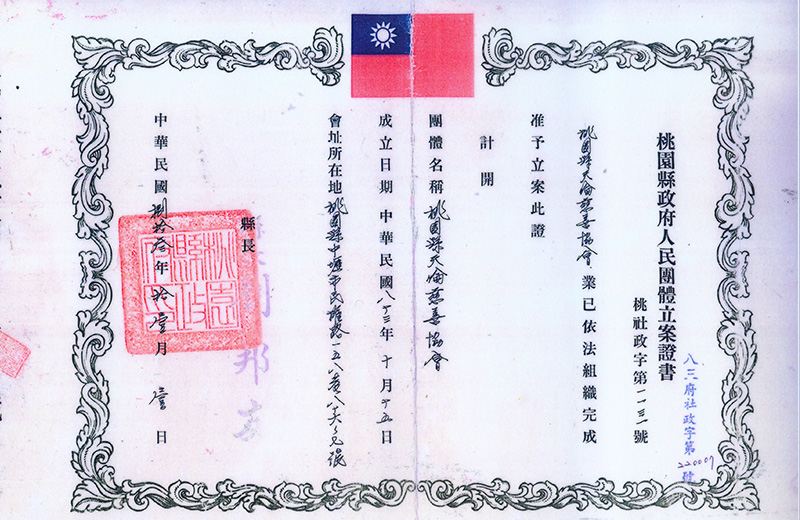 桃園縣政府人民團體立案證書
桃社政字第一一三一號
八三府社政字第220007號
桃園縣天倫慈善協會業已依法組織完成
准予立案此證
計開
團體名稱桃園縣天倫慈善協會
成立日期中華民國八十三年十月十五日
會址所在地桃園縣中壢市民族路
縣長
中華民國捌拾叁年拾壹月壹日
桃園縣政府印